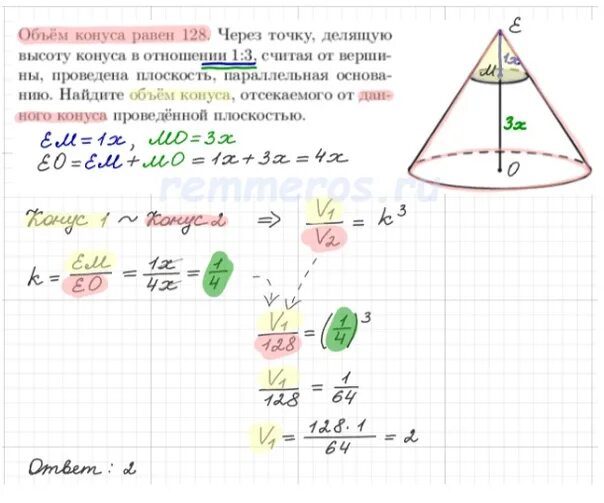 Объём конуса равен 128. Через точку, делящую
высоту конуса в отношении 1:3, считая от верши-
ны, проведена плоскость, параллельная основа-
нию. Найдите объём конуса, отсекаемого от дан-
ного конуса проведённой плоскостью.
E
1x
M
3x
O
EM = 1x, MO = 3x
EO = EM + MO = 1x + 3x = 4x
remmeros.ru
Конус 1 ~ Конус 2 ⇒ V₁/V₂ = k³
k = EM/EO = 1x/4x = 1/4
V₁/128 = (1/4)³
V₁/128 = 1/64
V₁ = 128·1/64 = 2
Ответ: 2